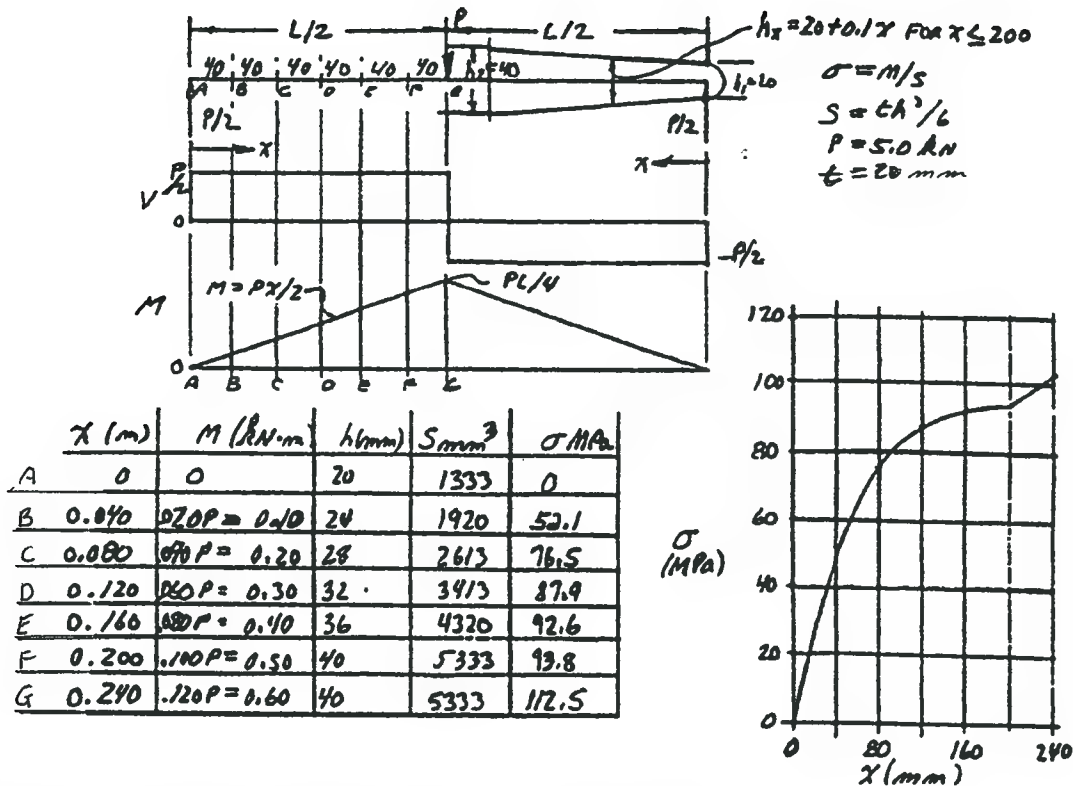 L/2 P L/2
hx = 20 + 0.1x FOR x ≤ 200
40 40 40 40 40 40
h2 = 40
h1 = 20
A B C D E F
P/2
P/2
σ = M/S
S = th²/6
P = 5.0 kN
t = 20 mm
x
x
P/2
V
0
-P/2
M = Px/2
PL/4
M
0
A B C D E F C
x (m) M (kN·m) h(mm) S mm³ σ MPa
A 0 0 20 1333 0
B 0.040 .020P = 0.10 24 1920 52.1
C 0.080 .040P = 0.20 28 2613 76.5
D 0.120 .060P = 0.30 32 3413 87.9
E 0.160 .080P = 0.40 36 4320 92.6
F 0.200 .100P = 0.50 40 5333 93.8
G 0.240 .120P = 0.60 40 5333 112.5
120
100
80
60
40
20
0
σ
(MPa)
0 80 160 240
x (mm)